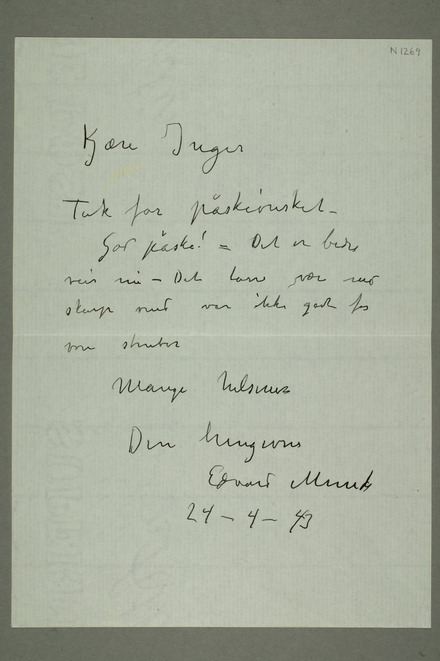 N 1269
Kjære Inger
Tak for påskeønsket –
God påske! – Det er bedre
veir nu – Det tørre vær med
skarp vind var ikke godt for
vore struber
Mange hilsener
Din hengivne
Edvard Munch
24 – 4 – 43